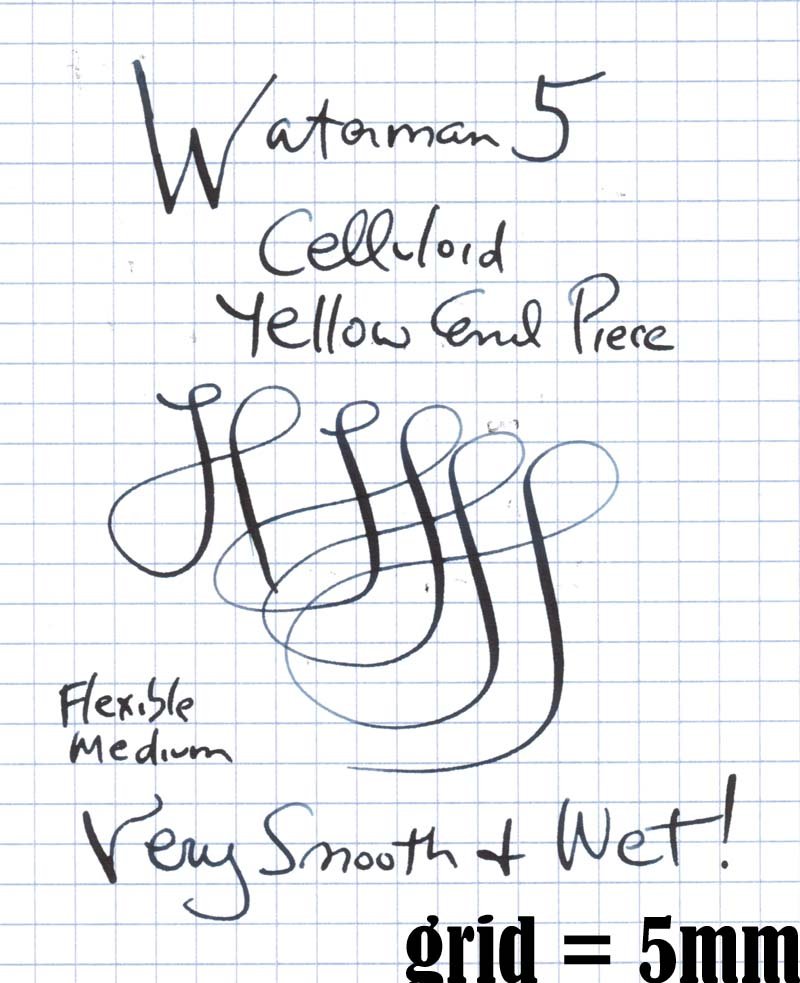 Waterman 5
Celluloid
Yellow End Piece
Flexible
Medium
Very Smooth + Wet!
grid = 5mm